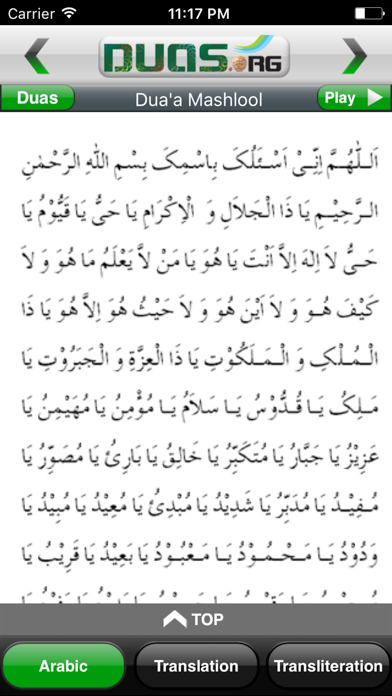 Carrier 11:17 PM
DUAS.ORG
Duas Dua'a Mashlool Play
اَللّٰهُمَّ اِنِّیْ اَسْئَلُکَ بِاسْمِکَ بِسْمِ اللهِ الرَّحْمٰنِ
الرَّحِیْمِ یَا ذَا الْجَلَالِ وَ الْاِکْرَامِ یَا حَیُّ یَا قَیُّوْمُ یَا
حَیُّ لاَ اِلٰهَ اِلاَّ اَنْتَ یَا هُوَ یَا مَنْ لاَّ یَعْلَمُ مَا هُوَ وَ لاَ
کَیْفَ هُوَ وَ لاَ اَیْنَ هُوَ وَ لاَ حَیْثُ هُوَ اِلاَّ هُوَ یَا ذَا
الْمُلْکِ وَ الْمَلَکُوْتِ یَا ذَا الْعِزَّةِ وَ الْجَبَرُوْتِ یَا
مَلِکُ یَا قُدُّوْسُ یَا سَلاَمُ یَا مُؤْمِنُ یَا مُهَیْمِنُ یَا
عَزِیْزُ یَا جَبَّارُ یَا مُتَکَبِّرُ یَا خَالِقُ یَا بَارِئُ یَا مُصَوِّرُ یَا
مُفِیْدُ یَا مُدَبِّرُ یَا شَدِیْدُ یَا مُبْدِئُ یَا مُعِیْدُ یَا مُبِیْدُ یَا
وَدُوْدُ یَا مَحْمُوْدُ یَا مَعْبُوْدُ یَا بَعِیْدُ یَا قَرِیْبُ یَا
TOP
Arabic Translation Transliteration